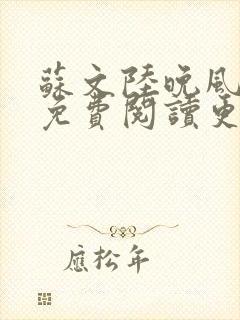 蘇文陸晚風
免費閱讀更
應松年